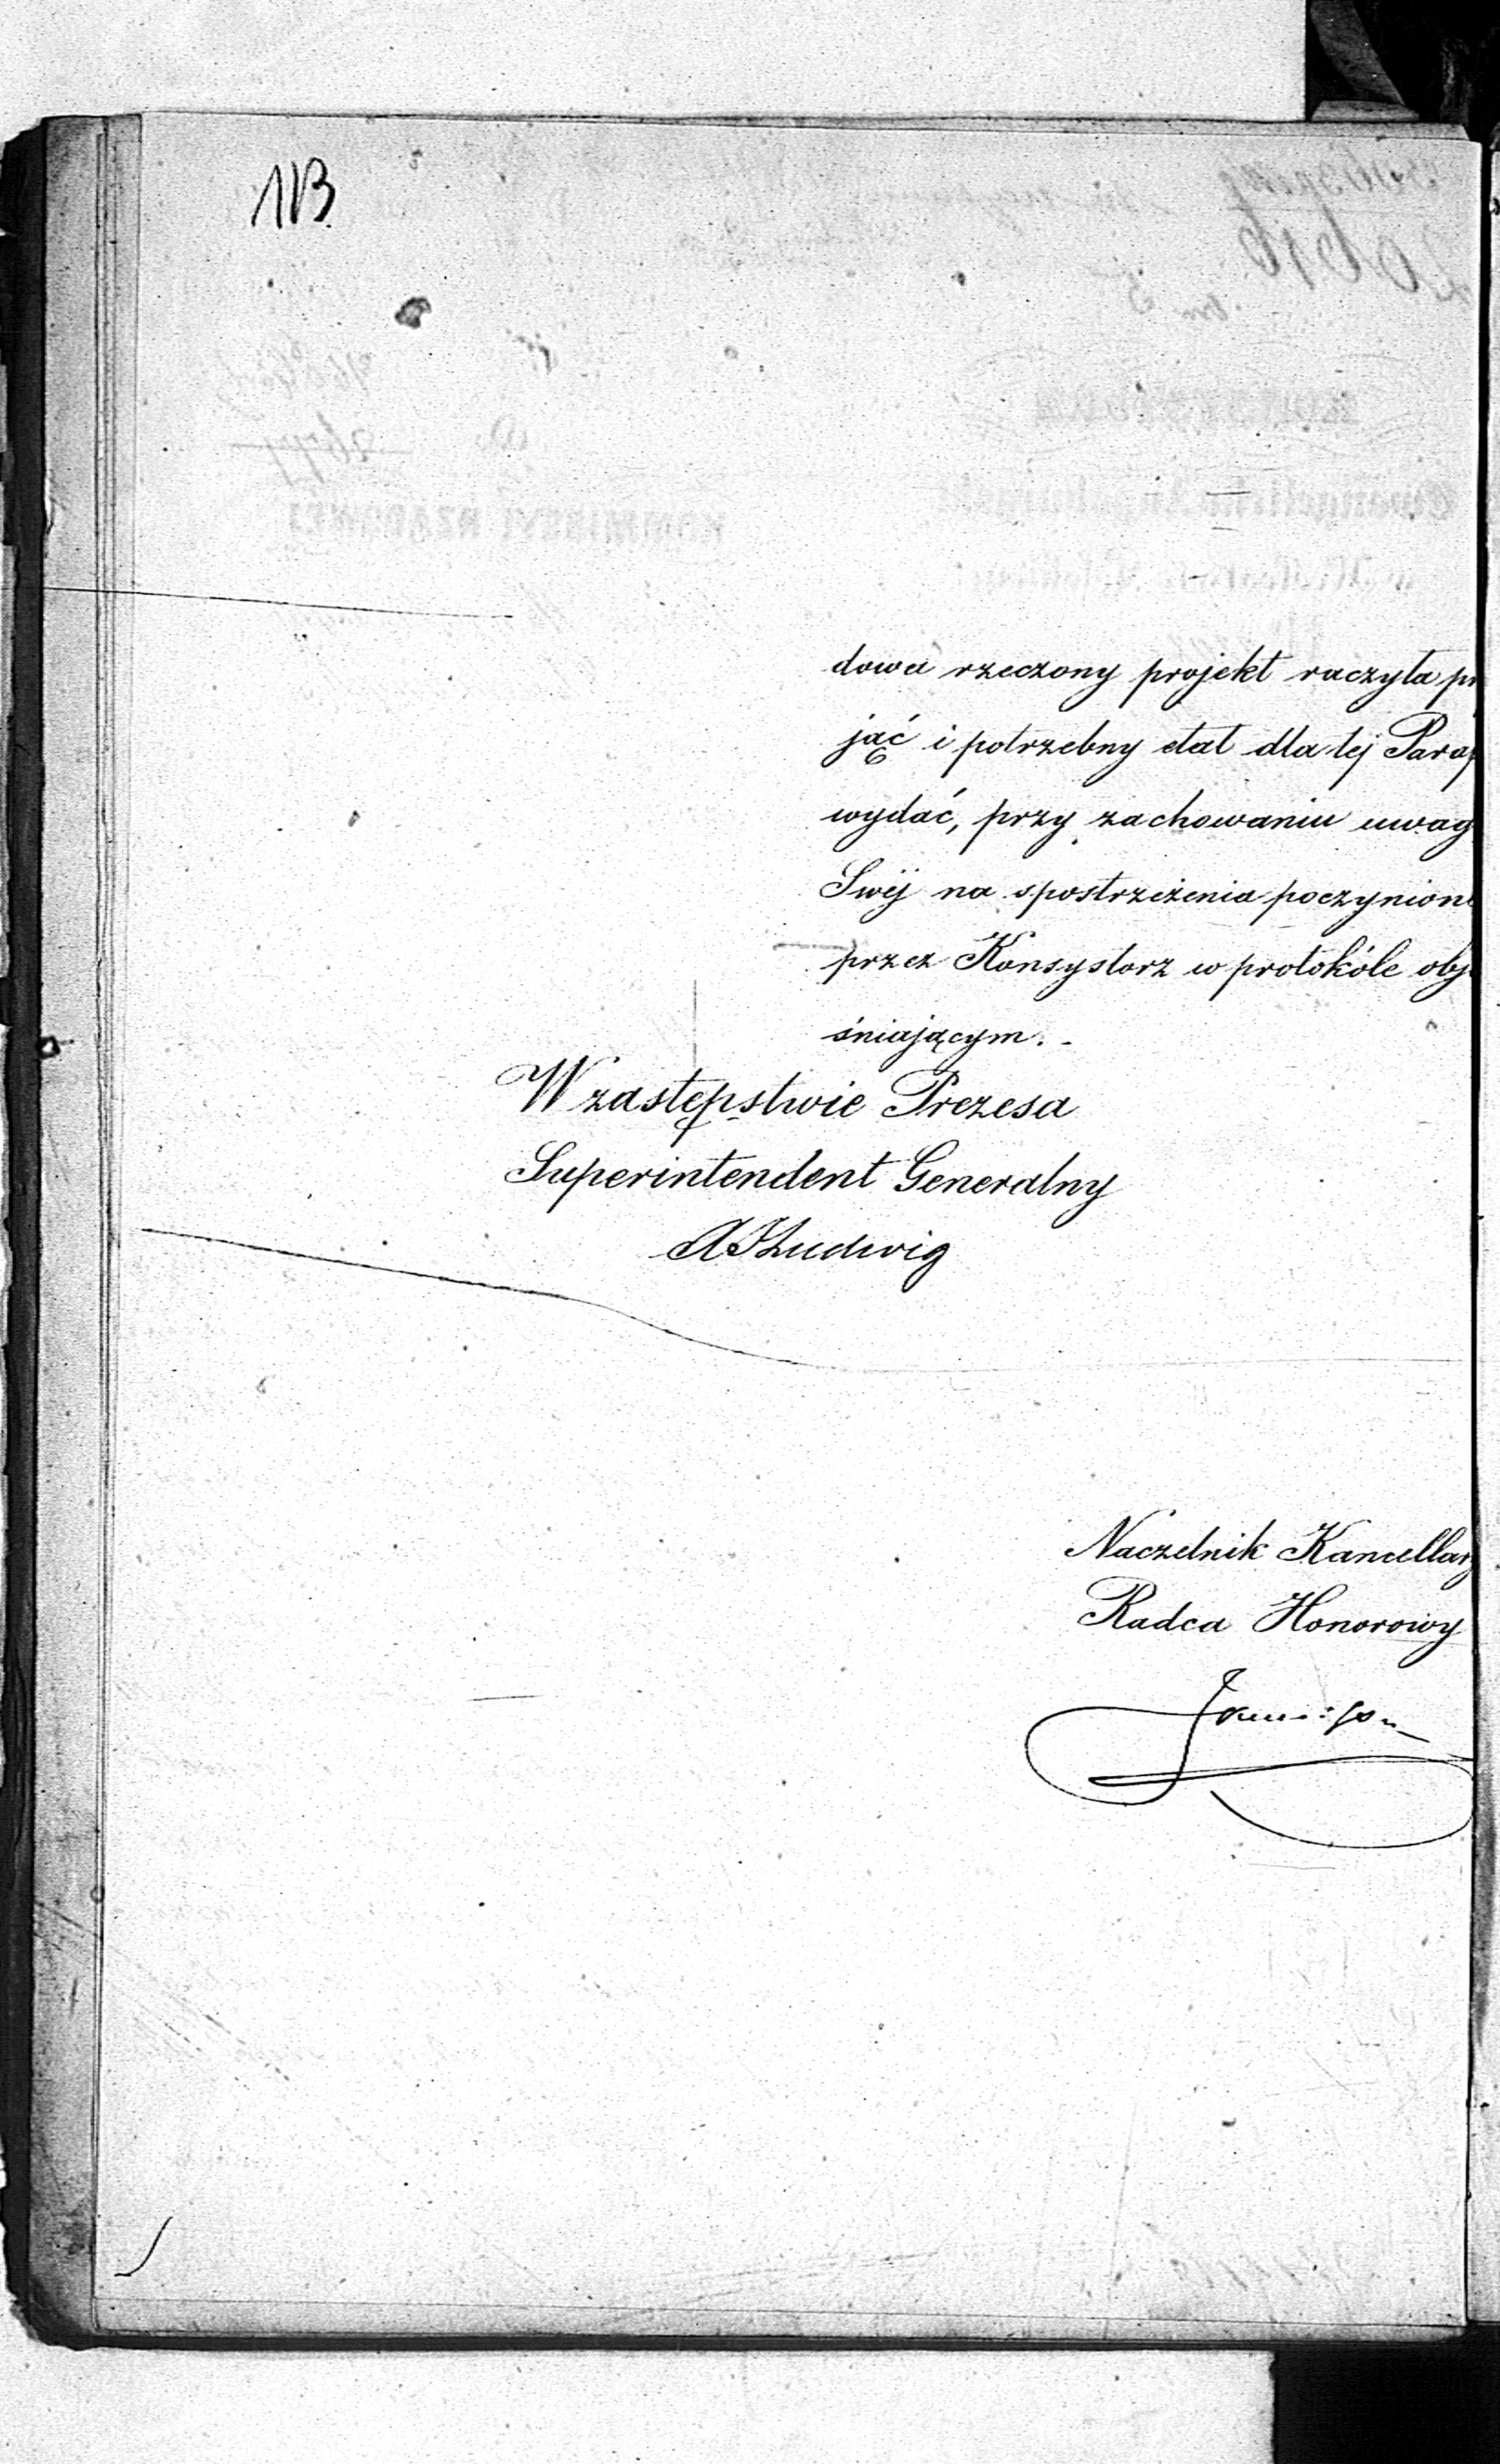 113
dowa rzeczony projekt raczyła pr
jąć i potrzebny etat dla tej Paraf
wydać, przy zachowaniu uwag
Swéj na spostrzeżenia poczynione
przez Konsystorz w protokóle obja
śniającym. -
W zastępstwie Prezesa
Superintendent Generalny
Ludwig
Naczelnik Kancellary
Radca Honorowy